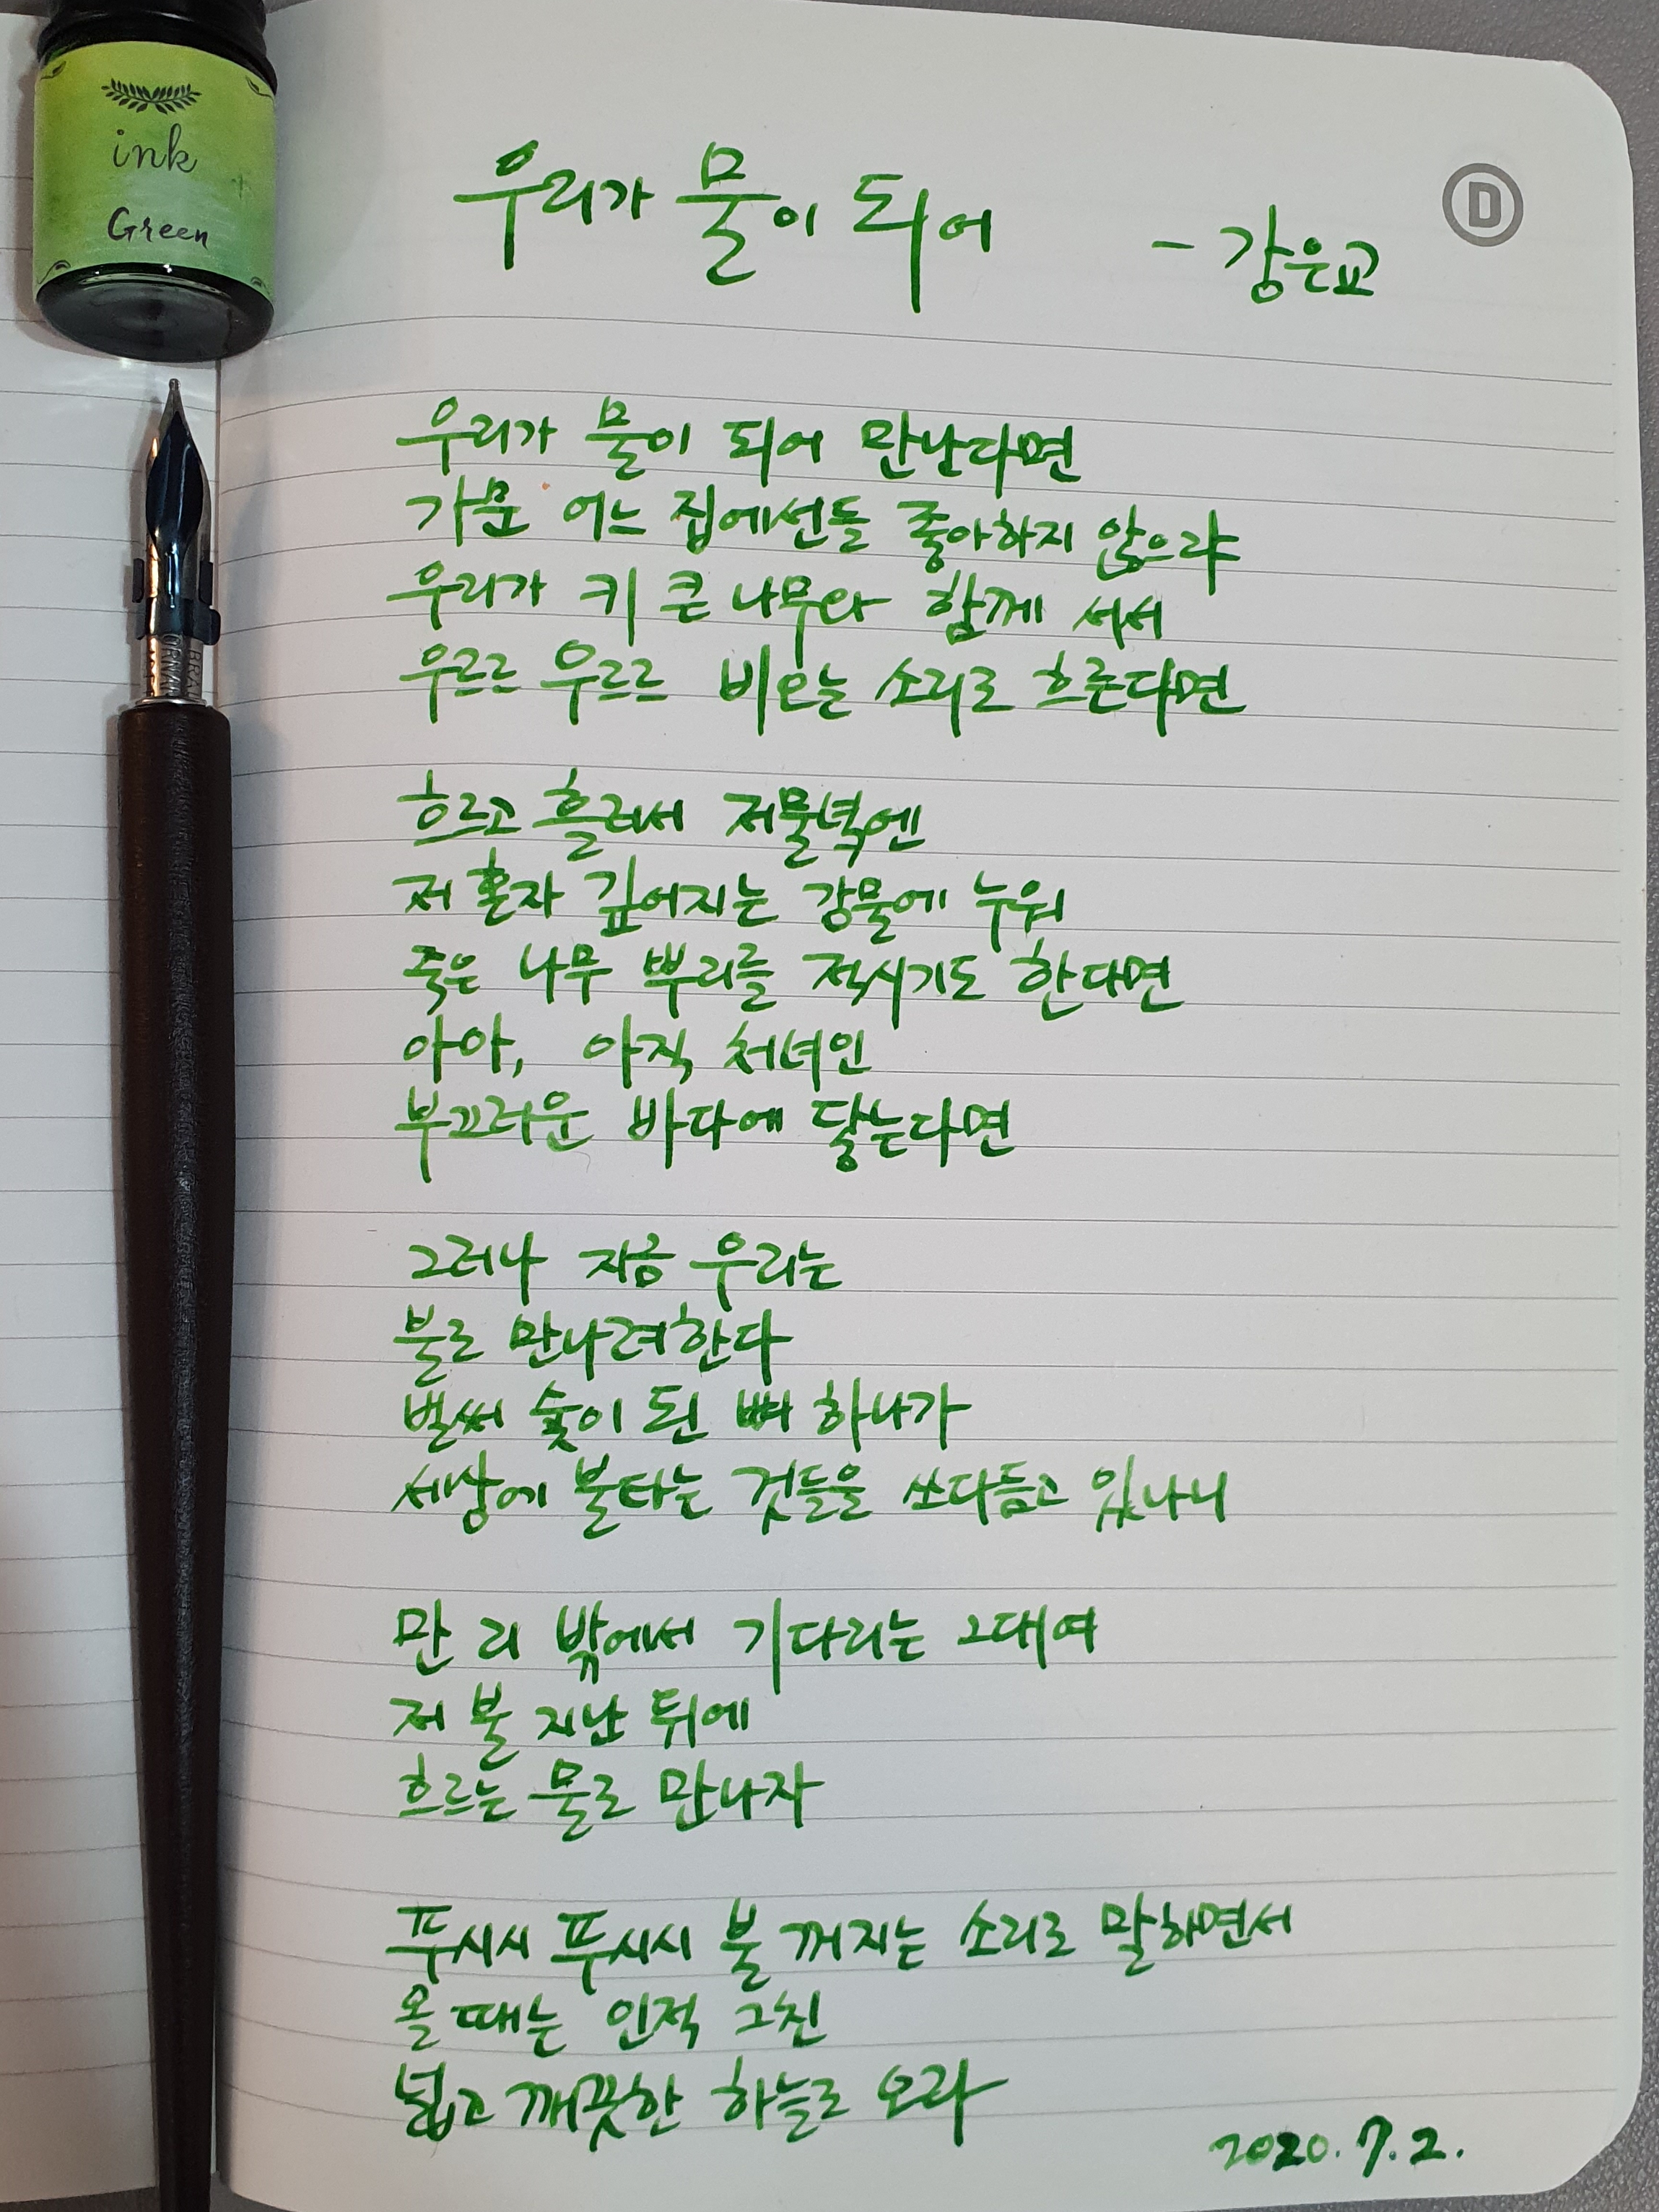 ink
Green
D
우리가 물이 되어 - 강은교
우리가 물이 되어 만난다면
가문 어느 집에선들 좋아하지 않으랴
우리가 키 큰 나무와 함께 서서
우르르 우르르 비오는 소리로 흐른다면
흐르고 흘러서 저물녘엔
저 혼자 깊어지는 강물에 누워
죽은 나무 뿌리를 적시기도 한다면
아아, 아직 처녀인
부끄러운 바다에 닿는다면
그러나 지금 우리는
불로 만나려한다
벌써 숯이 된 뼈 하나가
세상에 불타는 것들을 쓰다듬고 있나니
만 리 밖에서 기다리는 그대여
저 불 지난 뒤에
흐르는 물로 만나자
푸시시 푸시시 불 꺼지는 소리로 말하면서
올 때는 인적 그친
넓고 깨끗한 하늘로 오라
2020.7.2.